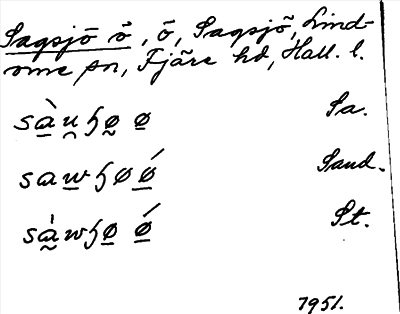 Sagsjö ö, ö, Sagsjö, Lind-
ome sn, Fjäre hd, Hall. l.
sà̱u̯ɧø̰ ø̱ Sa.
saw̱ɧøǿ̱ Sand.
sà̰wɧø̱ ǿ̱ St.
1951.